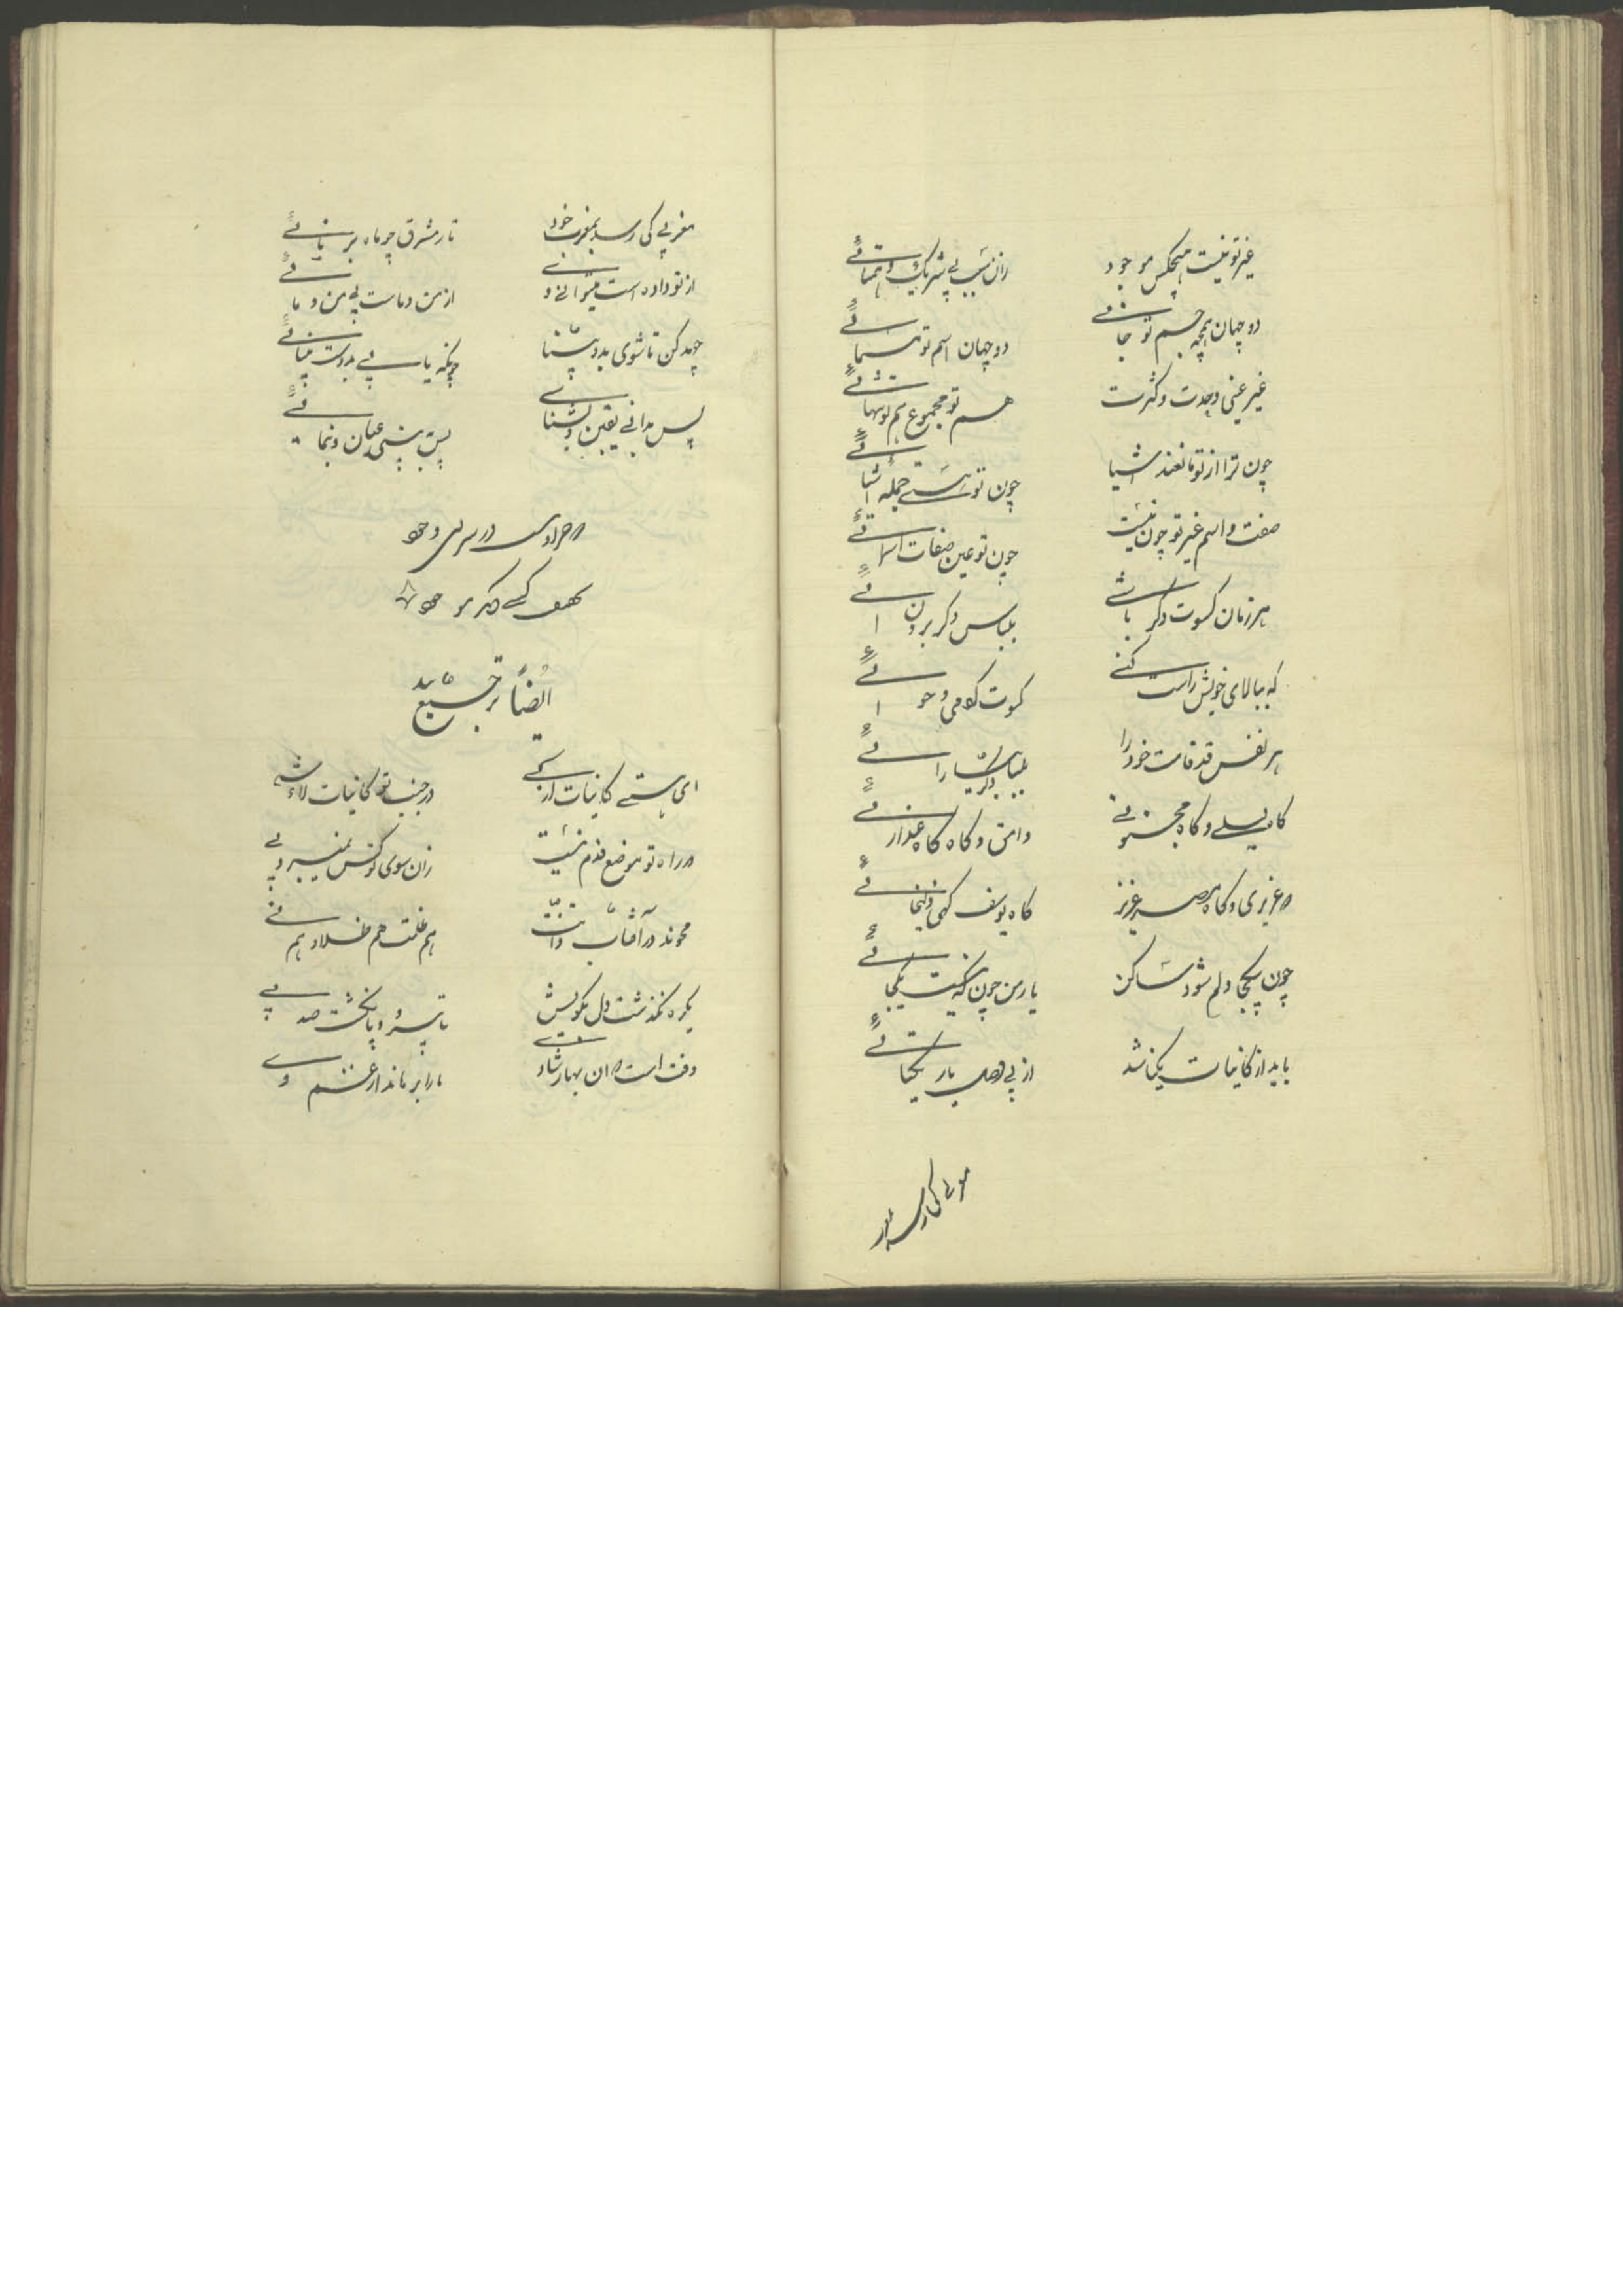 غیر تو نیست هیچکس موجود
زان سبب بی شریک و همتائی
دو جهان همچو جسم تو جانی
دو جهان اسم تو مسمائی
غیر عینی وحدت و کثرت
هم تو مجموع هم تو تنهائی
چون ترا از تو مانعند اشیا
چون تو هستی جمله اشیائی
صفت و اسم غیر تو چون نیست
چون تو عین صفات اسمائی
هر زمان کسوت دگر باشی
بلباس دگر برون آئی
که ببالای خویش راست کنی
کسوت آدمی و حوائی
هر نفس قد قامت خود را
بلباس دگر بیارائی
گاه لیلی و گاه مجنونی
وامق و گاه گاه عذرائی
در عزیزی و گاه مصر عزیز
گاه یوسف گهی زلیخائی
چون یکجا دلم شود ساکن
یار من چون که نیست یکجائی
باید از کاینات یکتا شد
از پی وصل یار یکتائی
مغربی کی رسد
مغربی کی رسد بمغرب خود
تا ز مشرق چو ماه بر نائی
از تو داده است میتوانی و
از من و ماست بی من و مائی
جهد کن تا شوی بدو بینا
چونکه یابی بدوست بینائی
پس بدانی یقین و بشناسی
پس ببینی عیان و بنمائی
که جز او نیست در سرای وجود
بحقیقت کسی دگر موجود
ایضاً ترجیع بند
ای هستی کاینات از کی
در جنب تو کاینات لاشی
در راه تو موضع قدم نیست
زان سوی تو کس نمیبرد پی
محوند در آفتاب ذاتت
هم ظلمت هم ظلال و هم فی
یکره نگذشت دل بکویش
تا سر و پا نگشت صد پی
وقت است در آن بهار شادی
ما را برهاند از غم دی